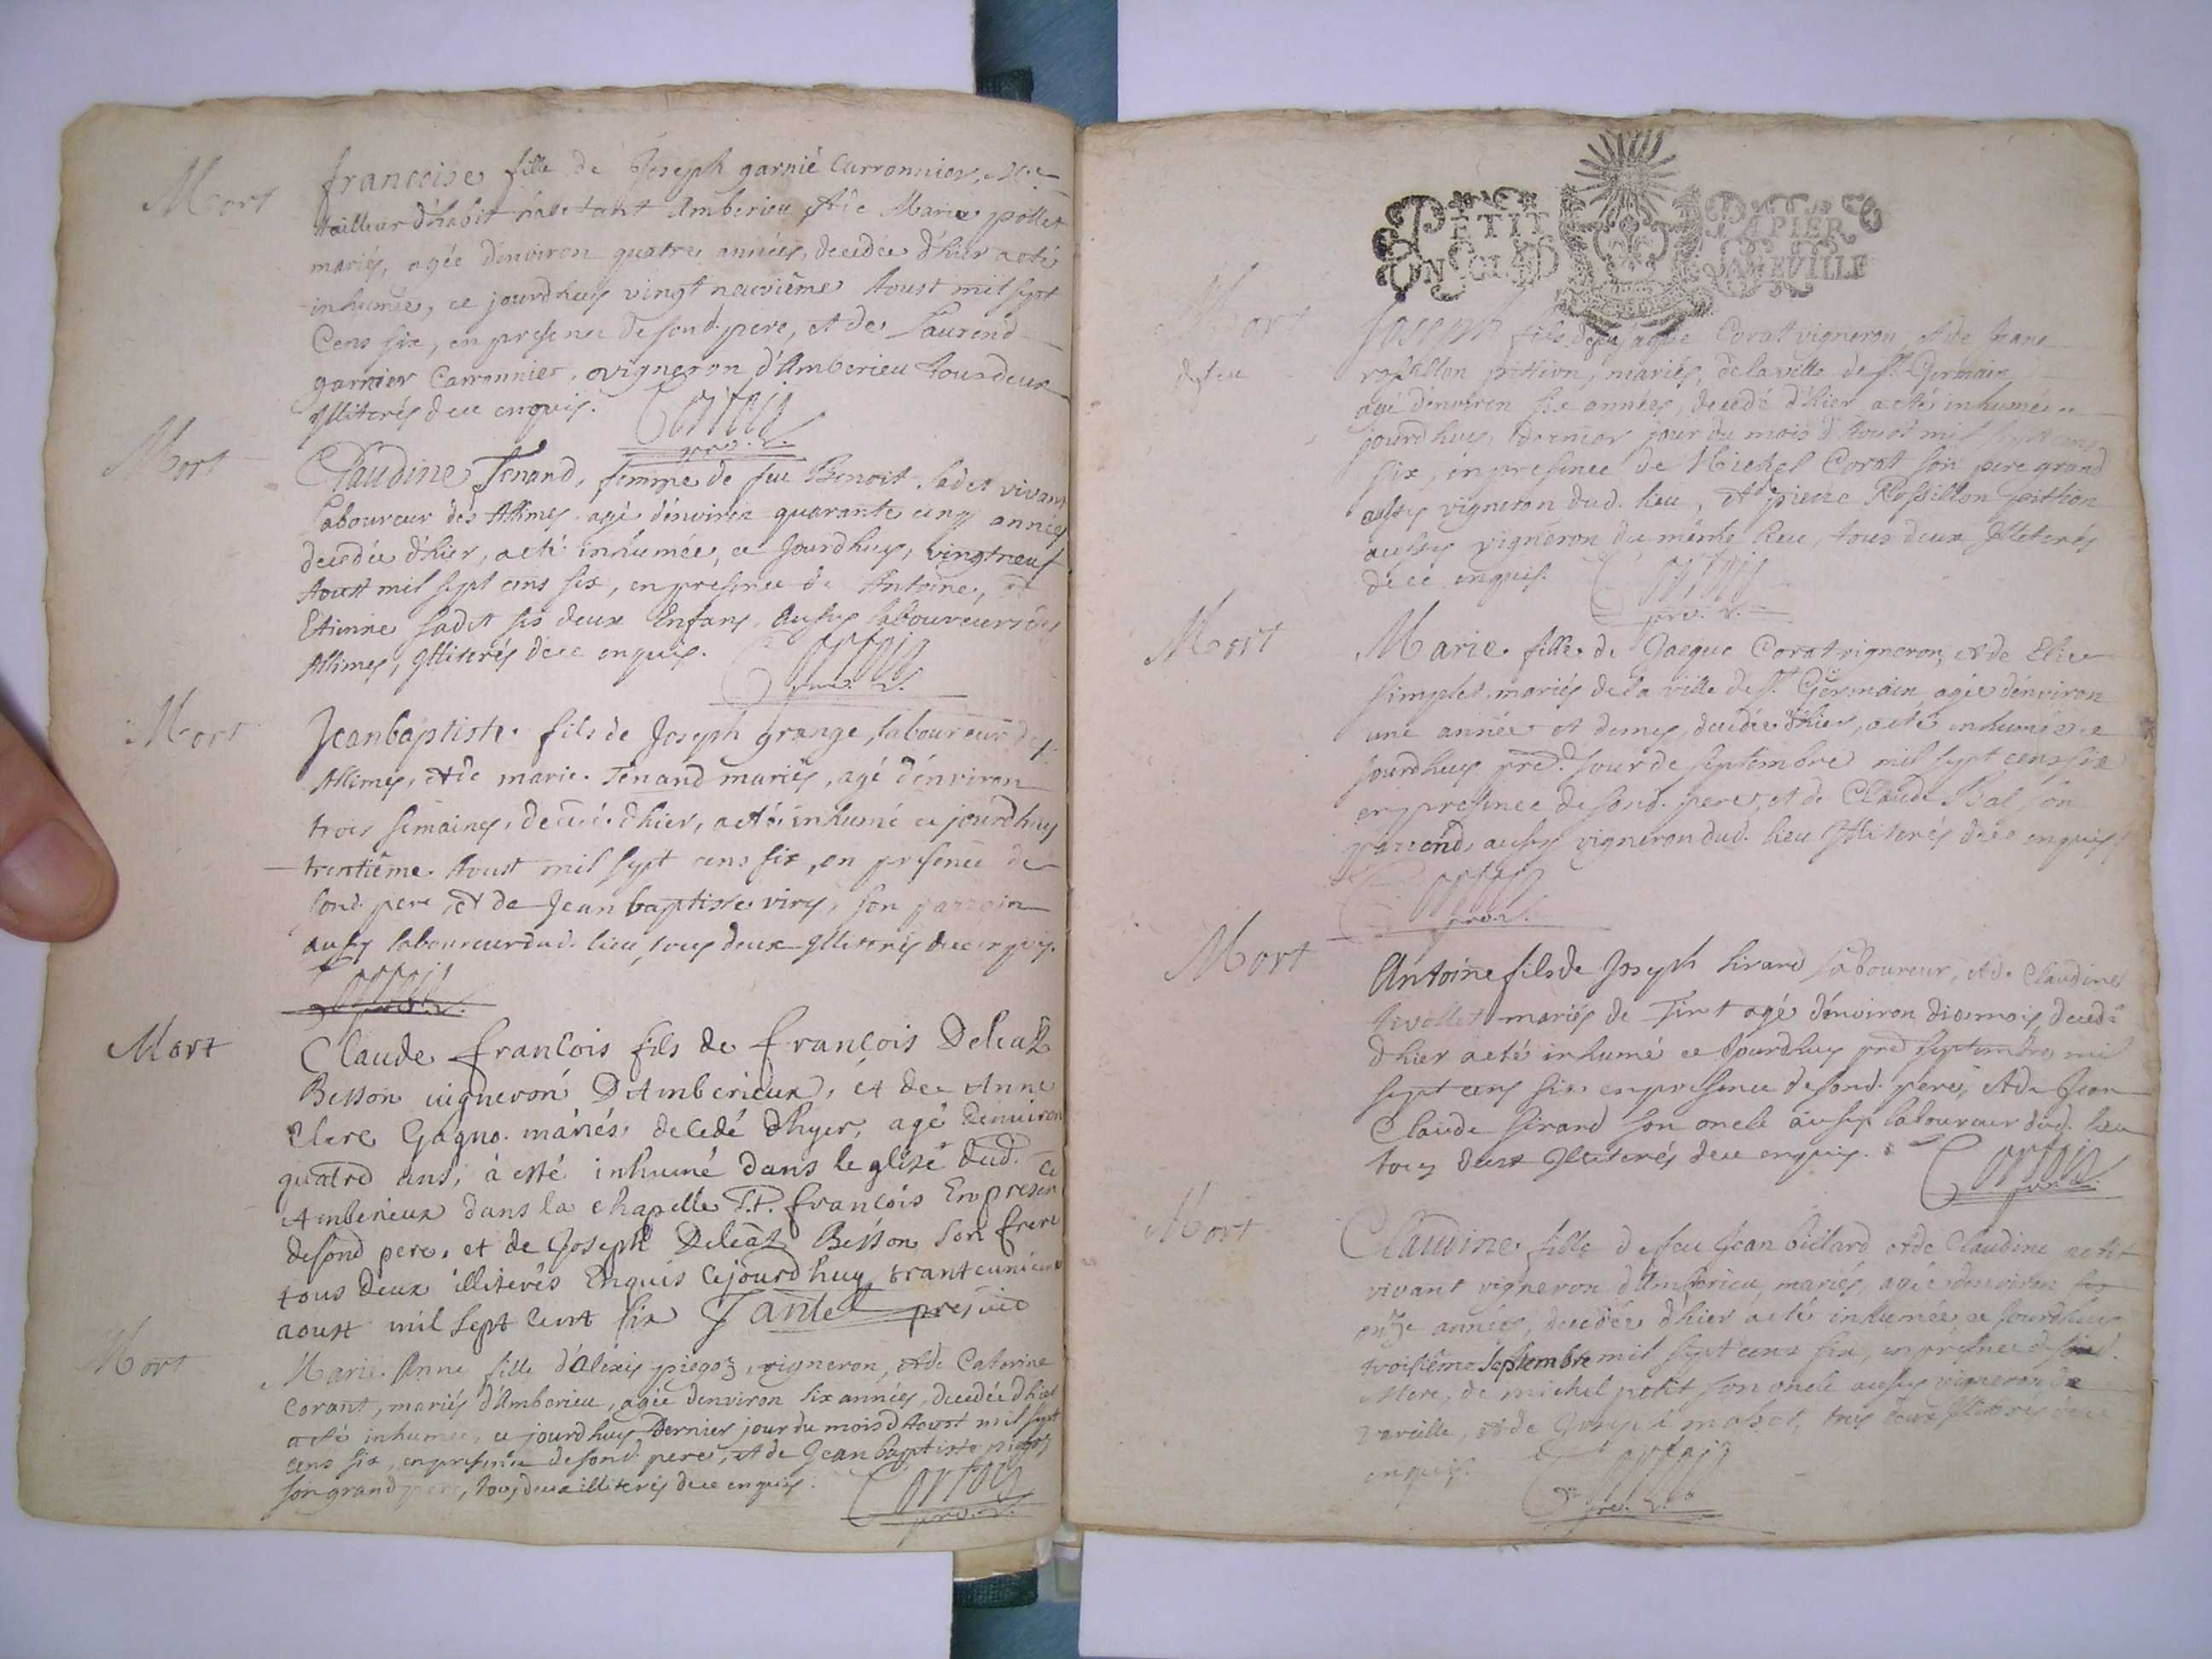 Mort
francoise fille de Joseph garnié Carronnier, Me
tailleur d'habit habitant Amberieu et de Marie pollet
mariés, agée d'environ quatre années, decedée d'hier a eté
inhumée, ce jourdhuy vingt neuvième Aoust mil sept
Cens six, en presence de sond. pere, et de Laurend
garnier Carronnier, vigneron d'Amberieu tous deux
Illiterés de ce enquis.
Mort
Claudine Tenand, femme de feu Benoit Sadet vivant
laboureur des Allimes agé d'environ quarante cinq années
decedée d'hier, a eté inhumée, ce Jourdhuy, vingt neuf
Aoust mil sept cens six, en presence de Antoine, et
Etienne Sadet ses deux Enfans, Aussy laboureurs des
Allimes, Illiterés de ce enquis.
Mort
Jeanbaptiste fils de Joseph grange, laboureur des
Allimes, et de marie Tenand mariés, agé d'environ
trois semaines, decedé d'hier, a eté inhumé ce jourdhuy
trentième Aoust mil sept cens six, en presence de
sond. pere, et de Jean baptiste viry, son parrain
aussy laboureur dud. lieu, tous deux Illiterés de ce enquis.
Mort
Claude francois fils de francois Deleaz
Besson vigneron D'Amberieux, et de Anne
Clere Gagno mariés, decedé dhyer, agé Denviron
quatre ans, à esté inhumé dans leglise dud.
Amberieux dans la chapelle St. francois En presence
desond pere, et de Joseph Deleaz Besson Son frere
tous Deux illiterés Enquis Cejourdhuy trante unieme
aoust mil sept cent six Tantet
Mort
Marie Anne fille d'Alexis piegoz, vigneron, et de Caterine
Corant, mariés d'Amberieu, agée denviron six années, decedée d'hier
a eté inhumée, ce jourdhuy Dernier jour du mois d'Aoust mil sept
cens six, en presence de sond. pere, et de Jean baptiste piegoz
son grand pere, tous deux illiterés de ce enquis.
PETIT PAPIER
ONCIND
Mort
Joseph fils de feu Jaque Corat vigneron, et de Jeane
rossillon pittion, mariés, de la ville de St. Germain
agé d'environ six années, decedé d'hier a eté inhumé ce
jourdhuy dernier jour du mois d'Aoust mil sept cens
six, en presence de Michel Corat son pere grand
aussy vigneron dud. lieu, et de pierre Rossillon pittion
aussy vigneron du même lieu, tous deux Illiterés
de ce enquis.
Mort
Marie fille de Jaque Corat vigneron, et de Elie
simplet, mariés de la ville de St. Germain, agée d'environ
une année et demy, decedée d'hier, a eté inhumée ce
jourdhuy pred. Jour de Septembre mil sept cens six
en presence de sond. pere, et de Claude
aussy vigneron dud. lieu Illiterés de ce enquis
Mort
Antoine fils de Joseph Sirand laboureur, et de Claudine
mariés de Tiret agé d'environ dix mois, decedé
d'hier a eté inhumé ce Jourdhuy pred Septembre mil
sept cens six en presence de sond. pere, et de Jean
Claude Sirand son oncle aussy laboureur dud. lieu
tous deux Illiterés de ce enquis.
Mort
Claudine fille de feu Jean biellard et de Claudine petit
vivant vigneron d'Amberieu, mariés, agée denviron
onze années, decedée d'hier a eté inhumée, ce Jourdhuy
troisième Septembre mil sept cens six, en presence de
Mere, de michel petit son oncle aussy vigneron de
vareille, et de Joseph tous deux Illiterés de ce
enquis.